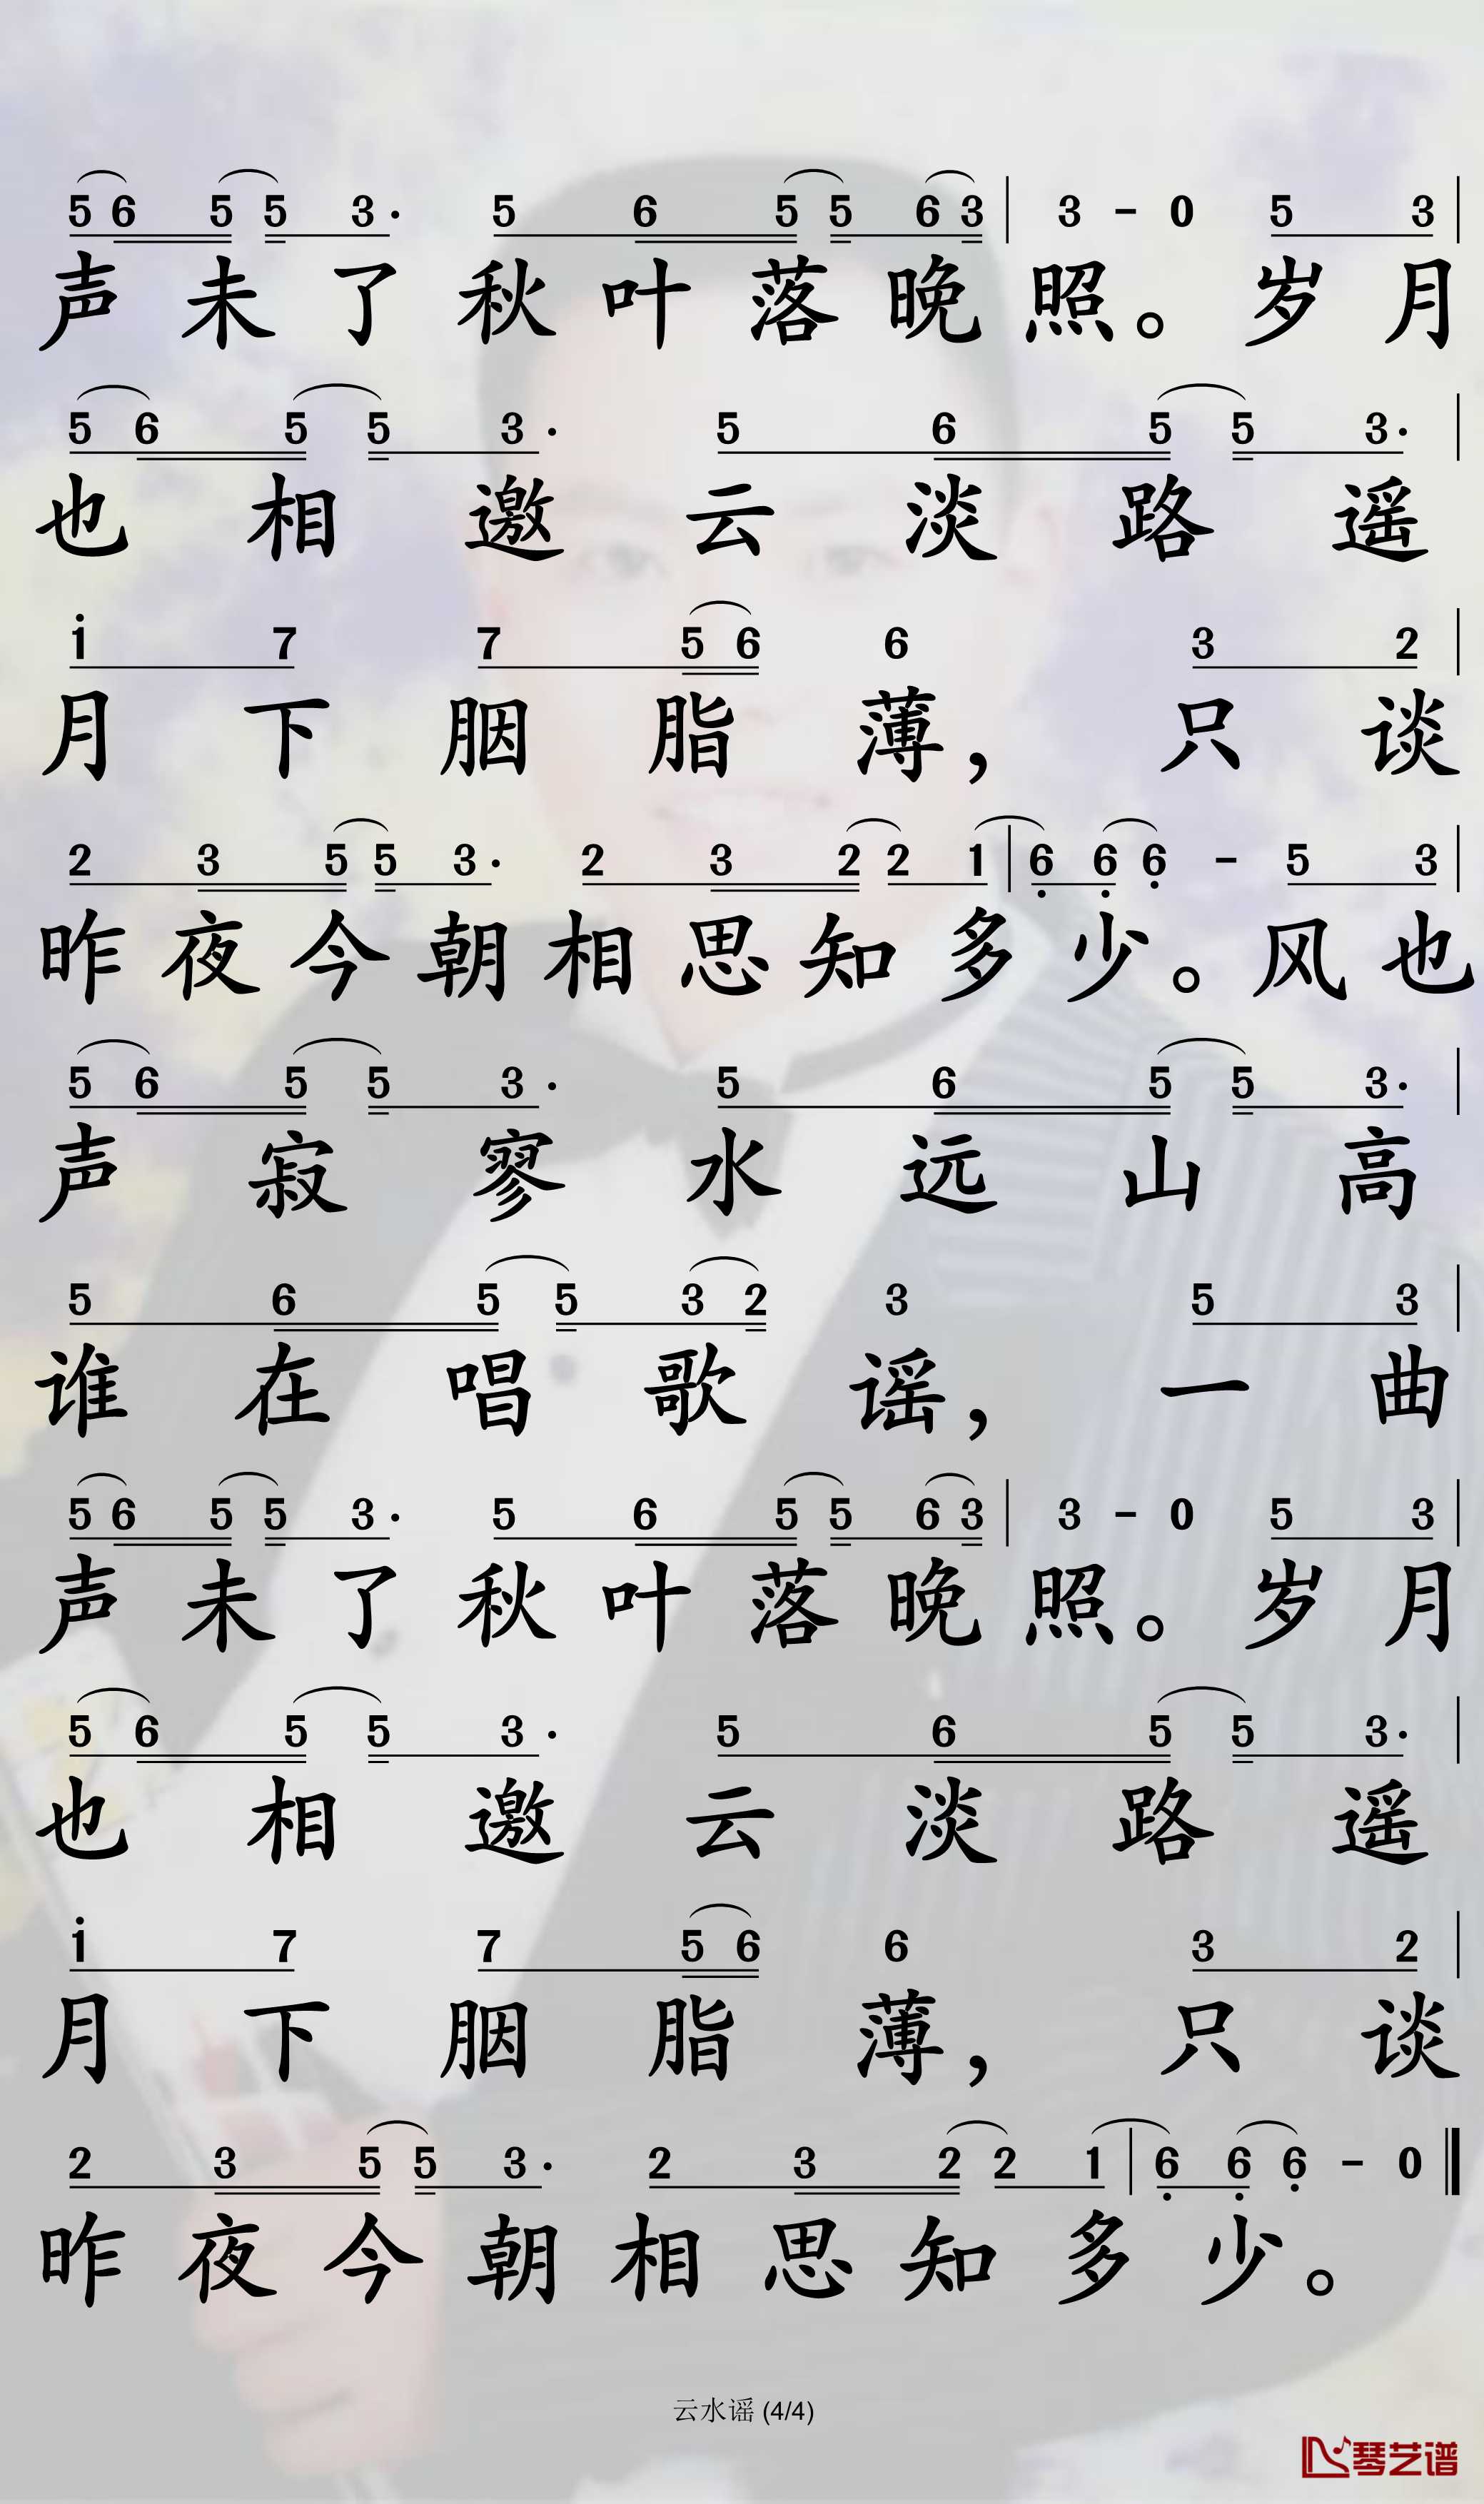 5 6 5 5 3· 5 6 5 5 6 3 | 3 – 0 5 3 |
声未了秋叶落晚照。岁月
5 6 5 5 3· 5 6 5 5 3· |
也相邀云淡路遥
i 7 7 5 6 6 3 2 |
月下胭脂薄，只谈
2 3 5 5 3· 2 3 2 2 1 | 6̣ 6̣ 6̣ – 5 3 |
昨夜今朝相思知多少。风也
5 6 5 5 3· 5 6 5 5 3· |
声寂寥水远山高
5 6 5 5 3 2 3 5 3 |
谁在唱歌谣，一曲
5 6 5 5 3· 5 6 5 5 6 3 | 3 – 0 5 3 |
声未了秋叶落晚照。岁月
5 6 5 5 3· 5 6 5 5 3· |
也相邀云淡路遥
i 7 7 5 6 6 3 2 |
月下胭脂薄，只谈
2 3 5 5 3· 2 3 2 2 1 | 6̣ 6̣ 6̣ – 0 ‖
昨夜今朝相思知多少。
云水谣 (4/4)
琴艺谱